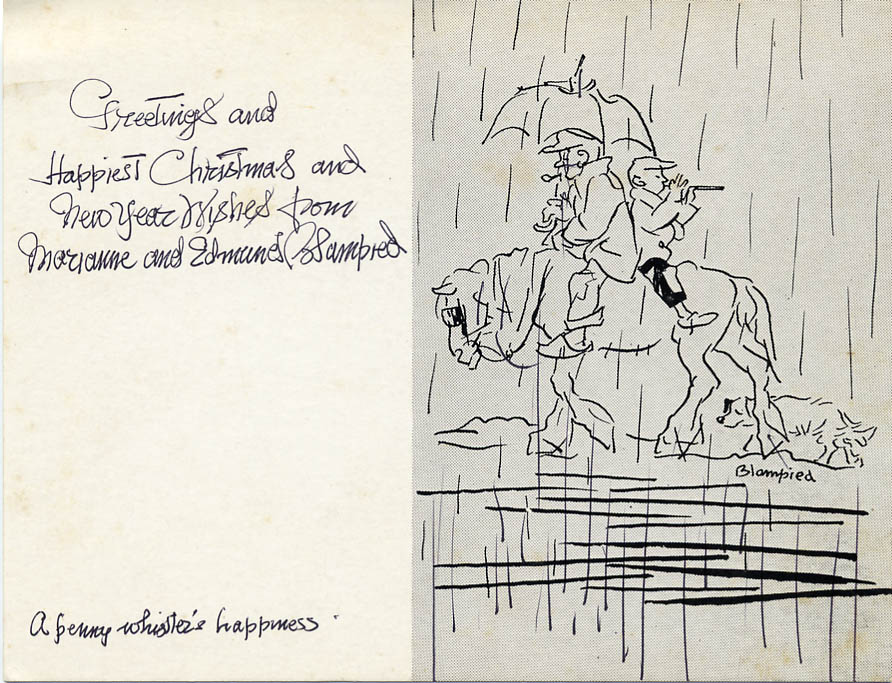 Greetings and
Happiest Christmas and
New Year Wishes from
Marianne and Edmund Blampied
A penny whistle's happiness
Blampied